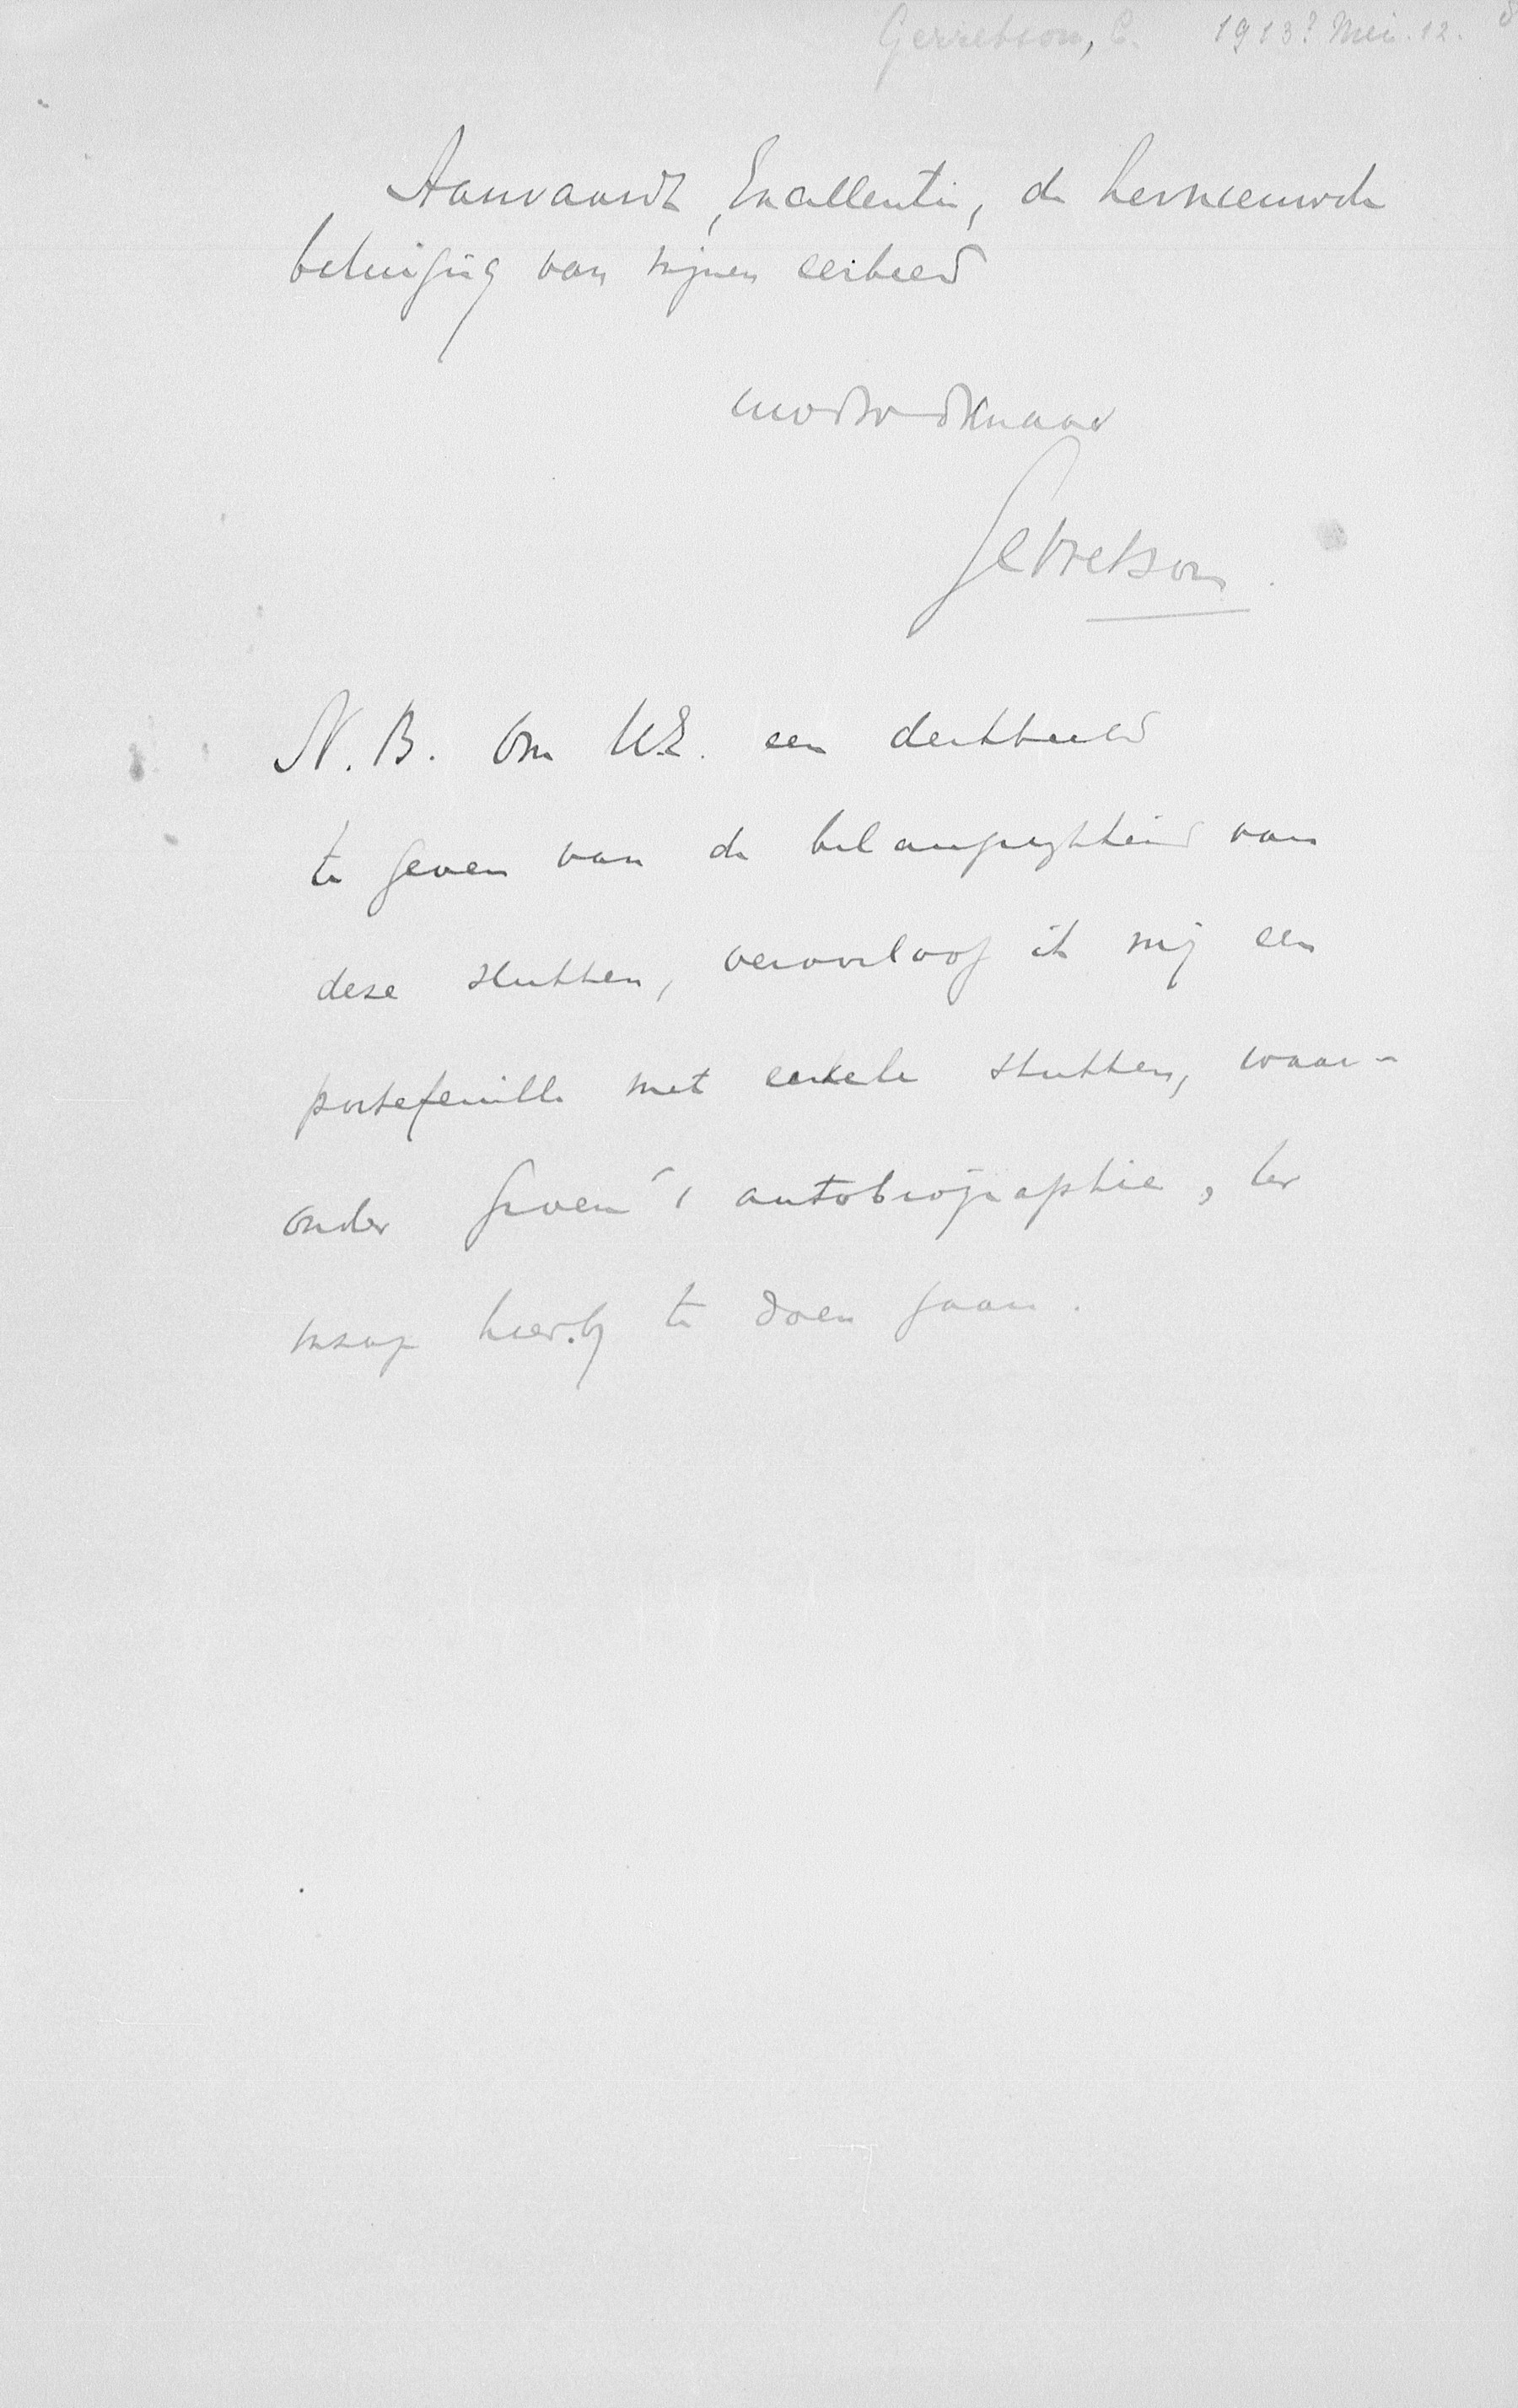 Gerretson, C. 1913? Mei. 12.
Aanvaardt, Excellentie, de hernieuwde
betuiging van mijnen eerbied
uwdwdienaar
Gerretson
N.B. Om U.E. een denkbeeld
te geven van de belangrijkheid van
deze stukken, veroorloof ik mij een
portefeuille met enkele stukken, waar-
onder Groen's autobiographie, ter
inzage hierbij te doen gaan.